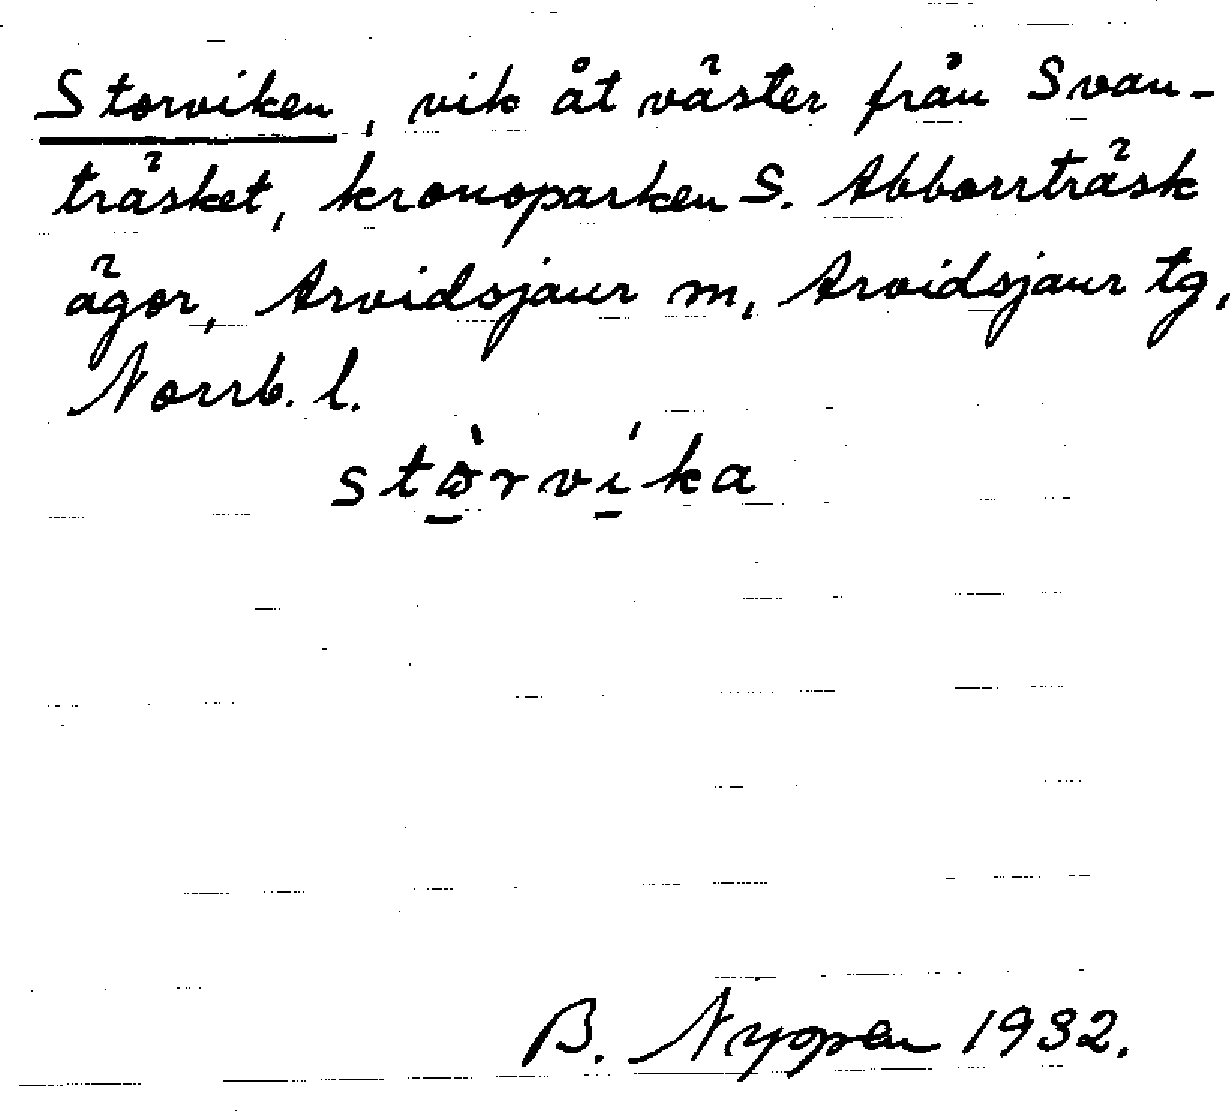 Storviken, vik åt väster från Svan-
träsket, kronoparken S. Abborrträsk
ägor, Arvidsjaur m, Arvidsjaur tg,
Norrb. l.
stò̱rví̱ka
B. Nygren 1932.